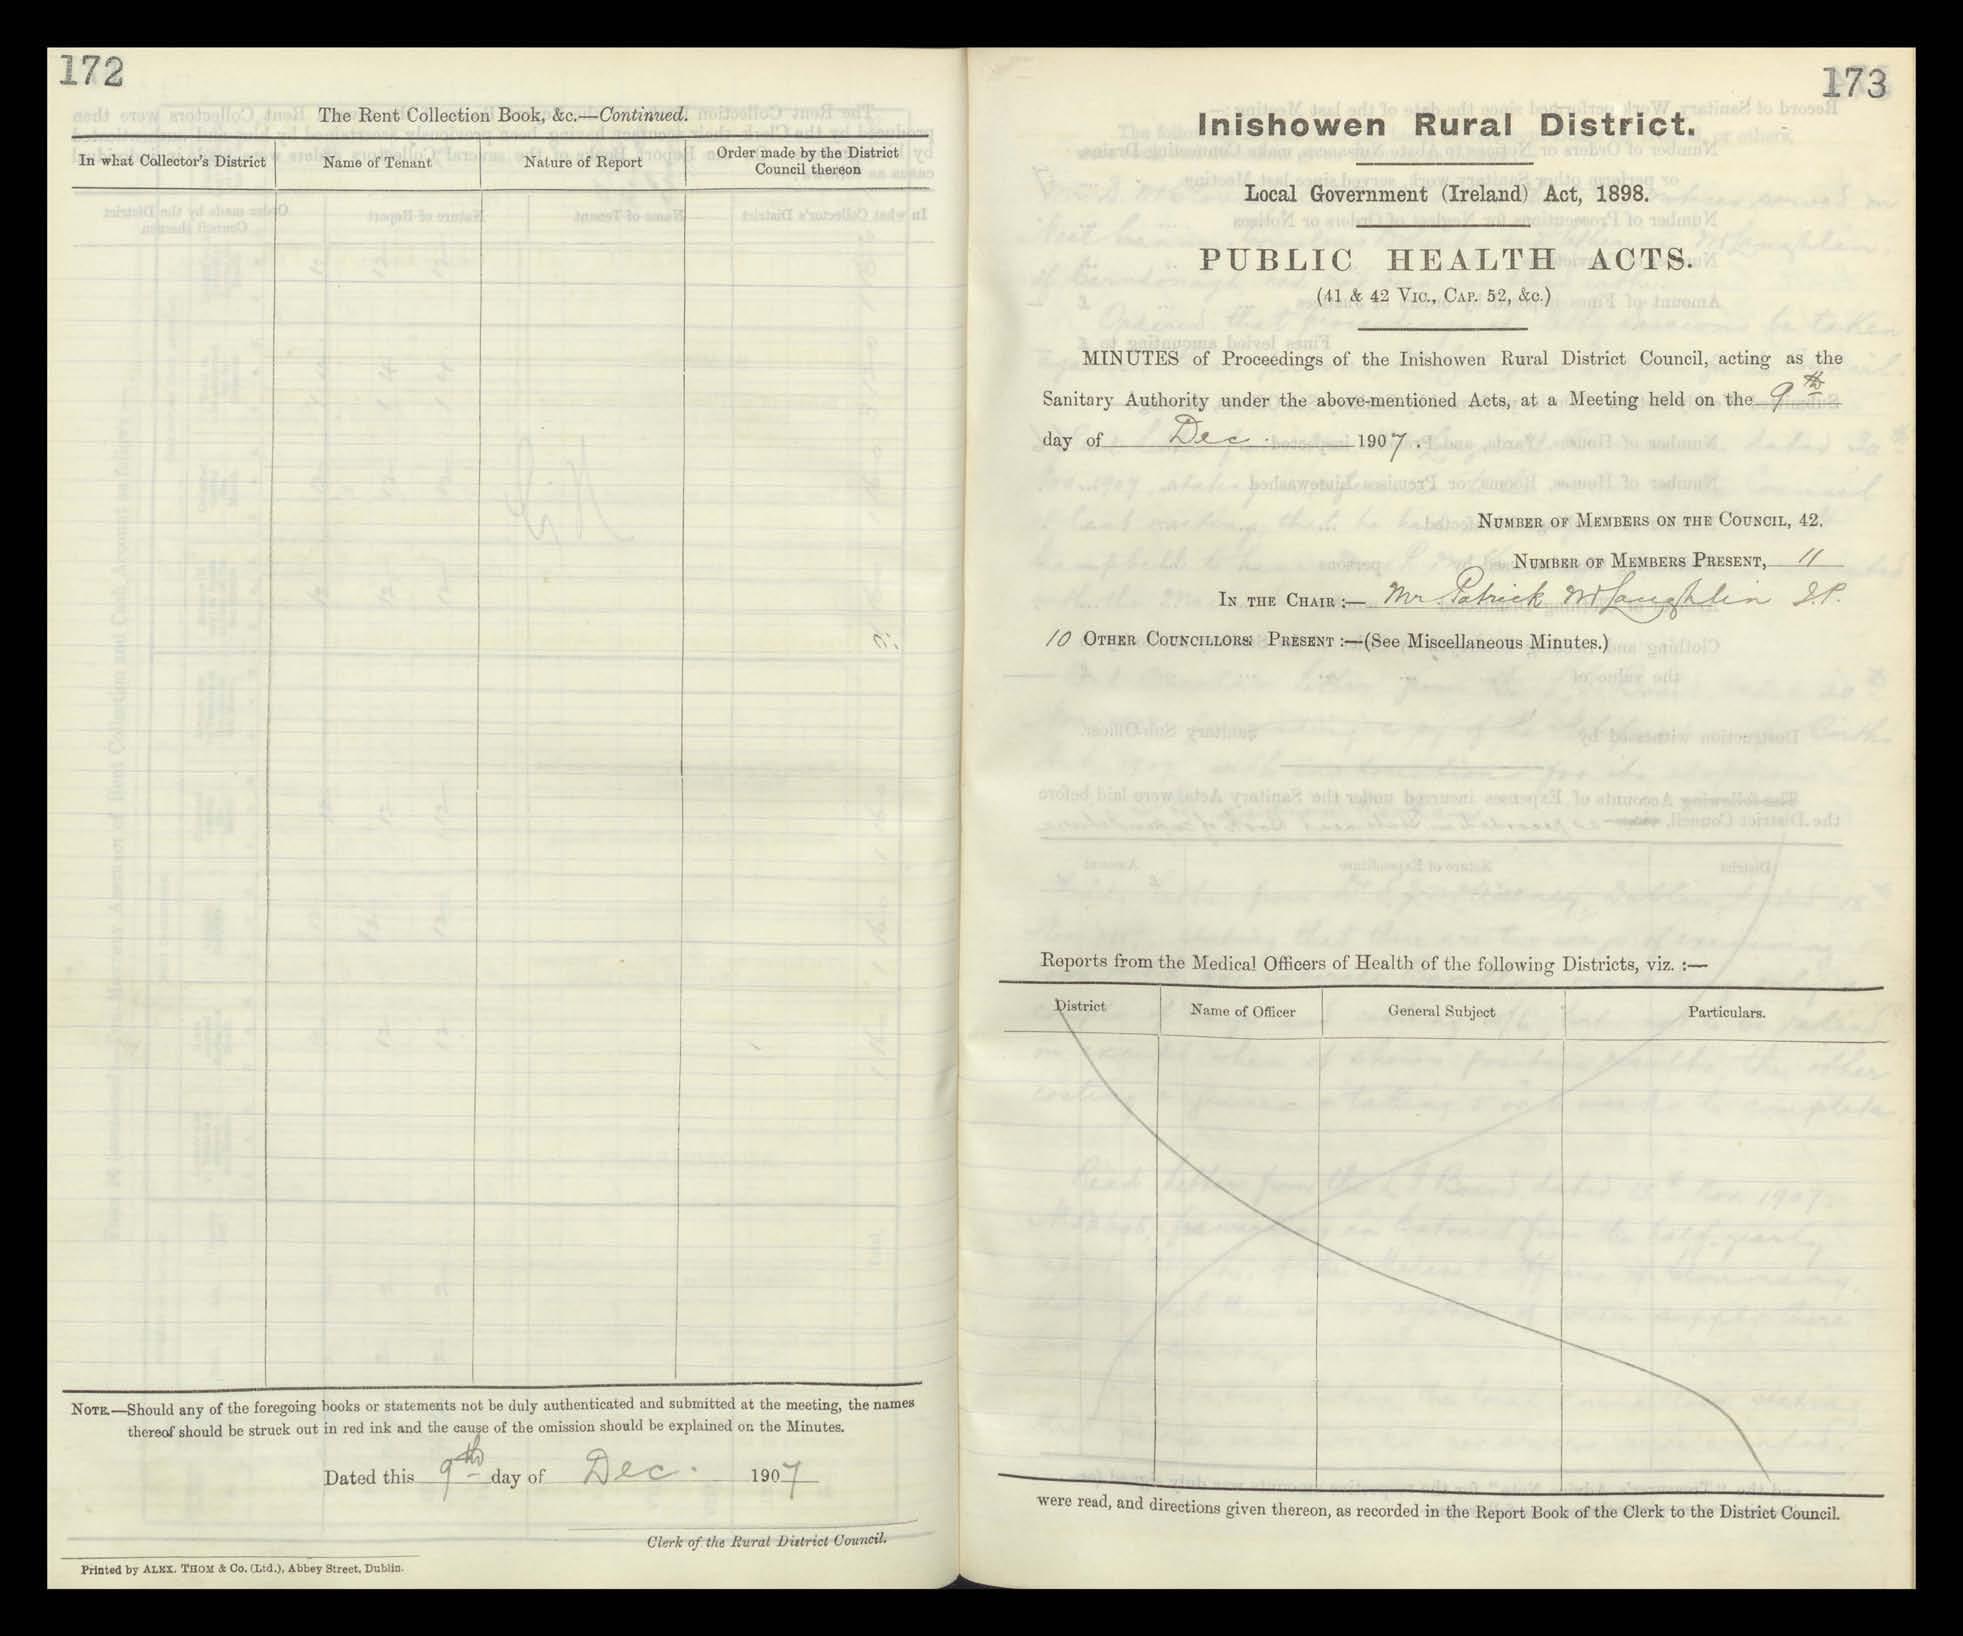 172
The Rent Collection Book, &c.—Continued.
In what Collector's District
Name of Tenant
Nature of Report
Order made by the District
Council thereon
NOTE.—Should any of the foregoing books or statements not be duly authenticated and submitted at the meeting, the names
thereof should be struck out in red ink and the cause of the omission should be explained on the Minutes.
Dated this 9th day of Dec. 1907
Clerk of the Rural District Council.
Printed by ALEX. THOM & Co. (Ltd.), Abbey Street, Dublin.
173
Inishowen Rural District.
Local Government (Ireland) Act, 1898.
PUBLIC HEALTH ACTS.
(41 & 42 VIC., CAP. 52, &c.)
MINUTES of Proceedings of the Inishowen Rural District Council, acting as the
Sanitary Authority under the above-mentioned Acts, at a Meeting held on the 9th
day of Dec. 1907.
NUMBER OF MEMBERS ON THE COUNCIL, 42.
NUMBER OF MEMBERS PRESENT, 11
IN THE CHAIR :— Mr. Patrick McLaughlin J.P.
10 OTHER COUNCILLORS PRESENT :—(See Miscellaneous Minutes.)
Reports from the Medical Officers of Health of the following Districts, viz. :—
District
Name of Officer
General Subject
Particulars.
were read, and directions given thereon, as recorded in the Report Book of the Clerk to the District Council.